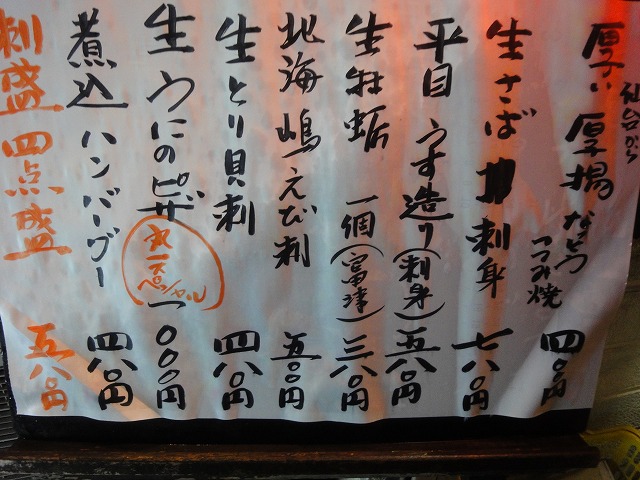 仙台から
厚い 厚揚 なっとうつつみ焼 四八〇円
生さば刺身 七八〇円
平目 うす造り(刺身) 五八〇円
生牡蛎 一個(富津) 三八〇円
北海嶋えび刺 五〇〇円
生とり貝刺 四八〇円
生うにのピザ 丸一スペシャル 一〇〇〇円
煮込ハンバーグー 四八〇円
刺盛 四点盛 五八〇円